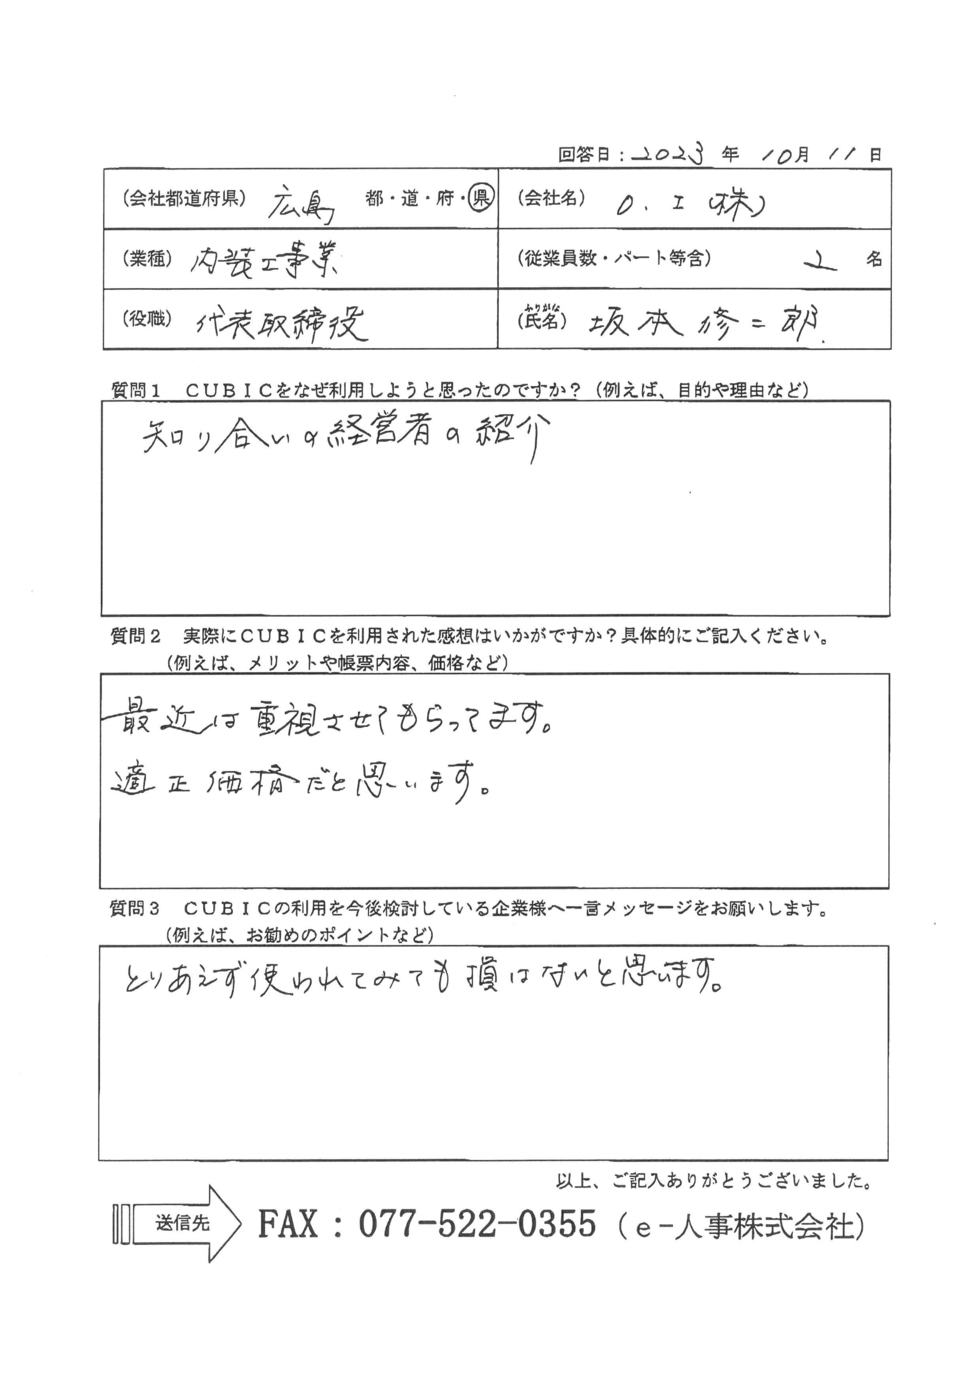 回答日：2023 年 10月 11 日
（会社都道府県） 広島 都・道・府・県 （会社名） O.I（株）
（業種） 内装工事業 （従業員数・パート等含） 2 名
（役職） 代表取締役 （氏名） ふりがな 坂本修二郎
質問１　ＣＵＢＩＣをなぜ利用しようと思ったのですか？（例えば、目的や理由など）
知り合いの経営者の紹介
質問２　実際にＣＵＢＩＣを利用された感想はいかがですか？具体的にご記入ください。
（例えば、メリットや帳票内容、価格など）
最近は重視させてもらってます。
適正価格だと思います。
質問３　ＣＵＢＩＣの利用を今後検討している企業様へ一言メッセージをお願いします。
（例えば、お勧めのポイントなど）
とりあえず使われてみても損はないと思います。
以上、ご記入ありがとうございました。
送信先 FAX：077-522-0355（ｅ-人事株式会社）